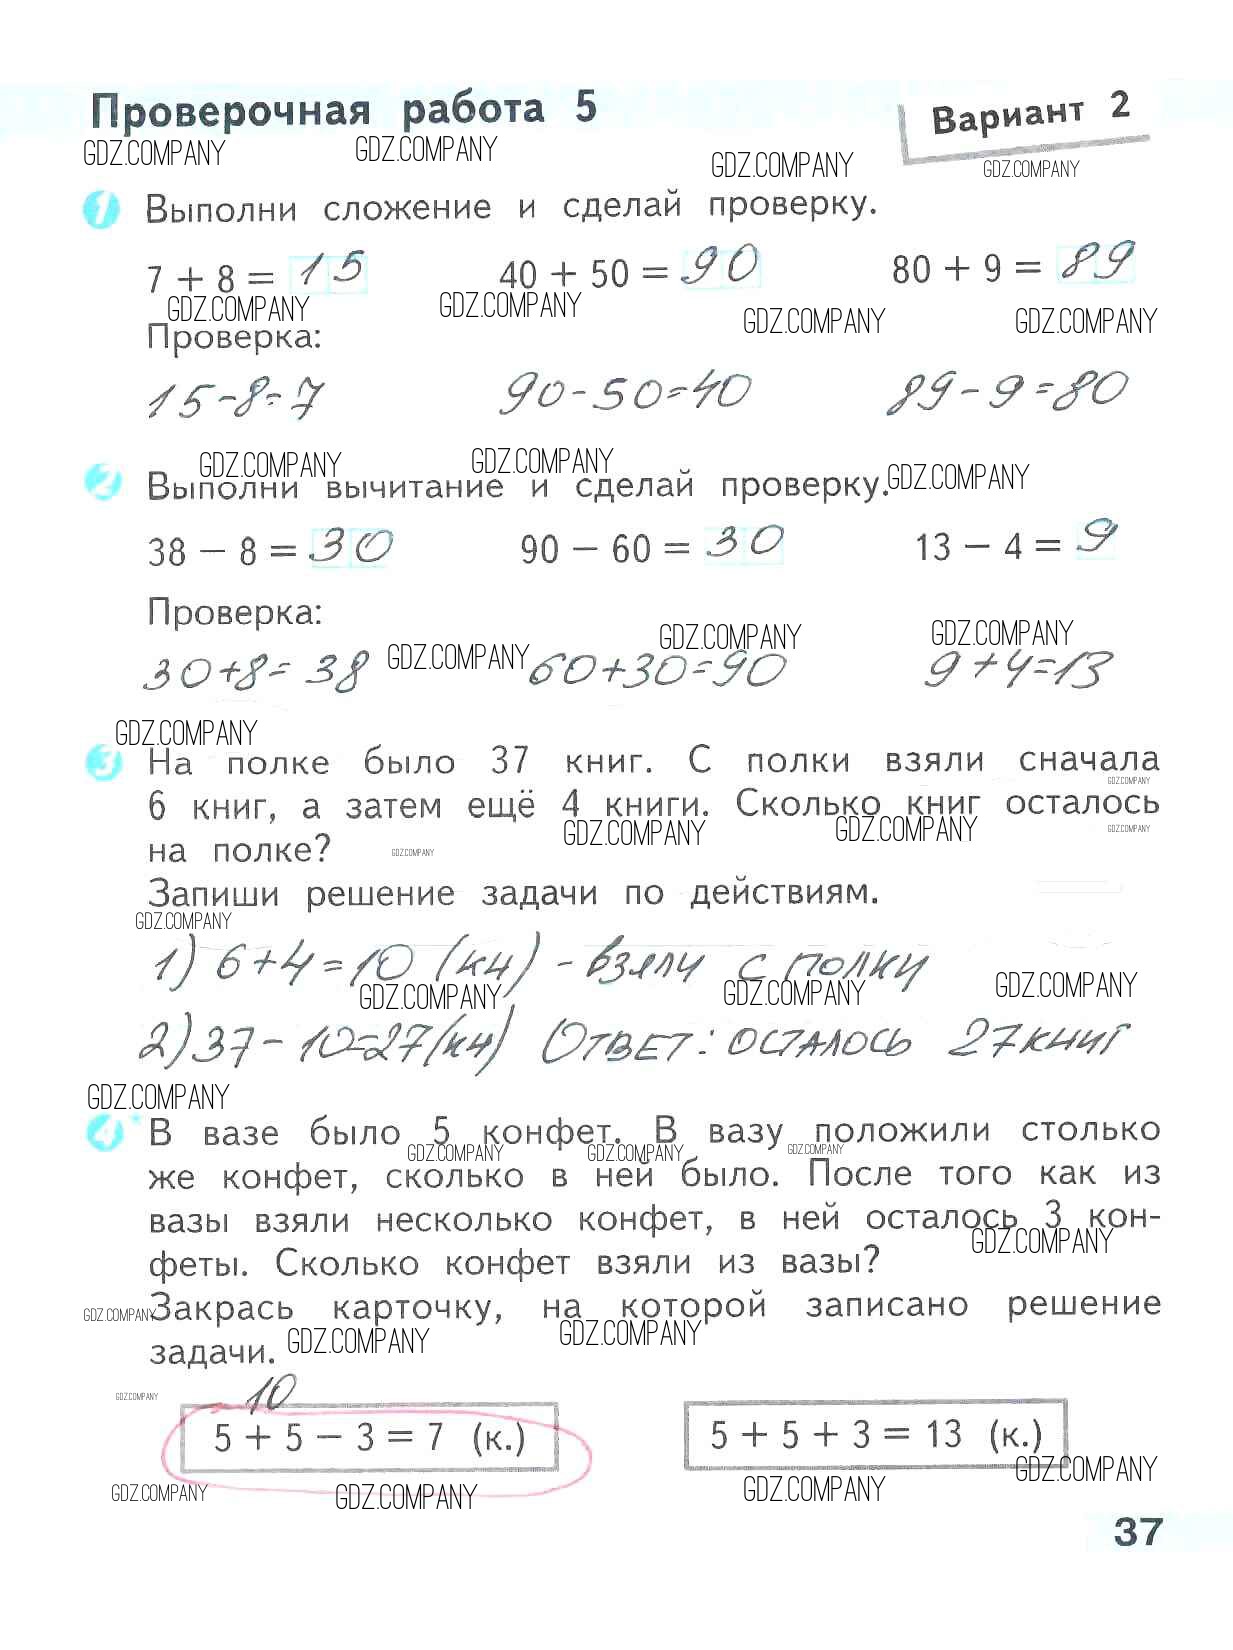 Проверочная работа 5
Вариант 2
GDZ.COMPANY GDZ.COMPANY GDZ.COMPANY GDZ.COMPANY
1 Выполни сложение и сделай проверку.
7 + 8 = 15 40 + 50 = 90 80 + 9 = 89
GDZ.COMPANY GDZ.COMPANY GDZ.COMPANY GDZ.COMPANY
Проверка:
15-8=7 90-50=40 89-9=80
GDZ.COMPANY GDZ.COMPANY GDZ.COMPANY
2 Выполни вычитание и сделай проверку.
38 − 8 = 30 90 − 60 = 30 13 − 4 = 9
Проверка:
GDZ.COMPANY GDZ.COMPANY GDZ.COMPANY
30+8=38 60+30=90 9+4=13
GDZ.COMPANY
3 На полке было 37 книг. С полки взяли сначала
GDZ.COMPANY
6 книг, а затем ещё 4 книги. Сколько книг осталось
GDZ.COMPANY GDZ.COMPANY GDZ.COMPANY
на полке?
GDZ.COMPANY
Запиши решение задачи по действиям.
GDZ.COMPANY
1) 6+4=10 (кн) - взяли с полки
GDZ.COMPANY GDZ.COMPANY GDZ.COMPANY
2) 37-10=27(кн) Ответ: осталось 27 книг
GDZ.COMPANY
4* В вазе было 5 конфет. В вазу положили столько
GDZ.COMPANY GDZ.COMPANY GDZ.COMPANY
же конфет, сколько в ней было. После того как из
вазы взяли несколько конфет, в ней осталось 3 кон-
GDZ.COMPANY
феты. Сколько конфет взяли из вазы?
GDZ.COMPANY
Закрась карточку, на которой записано решение
GDZ.COMPANY GDZ.COMPANY
задачи.
GDZ.COMPANY
10
5 + 5 − 3 = 7 (к.) 5 + 5 + 3 = 13 (к.)
GDZ.COMPANY GDZ.COMPANY GDZ.COMPANY GDZ.COMPANY
37